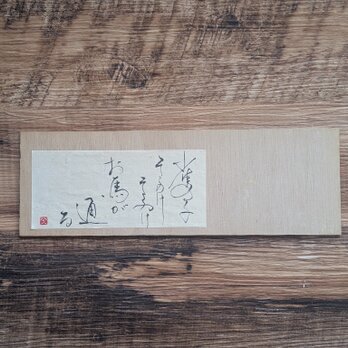 雀の子
そこのけ
そこのけ
お馬が
通る